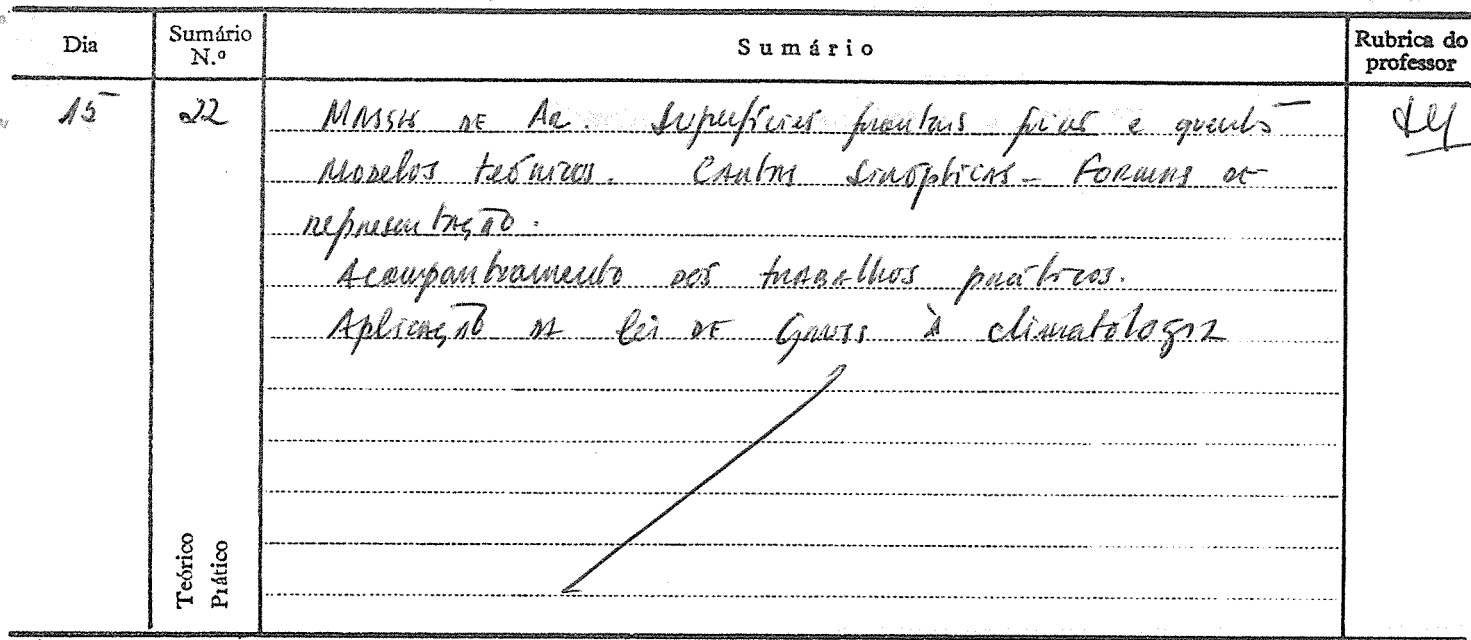 Dia Sumário N.º Sumário Rubrica do professor
15 22 Massas de Ar. Superfícies frontais frias e quentes
Modelos teóricos. Cartas Sinópticas - Formas de
representação.
Acompanhamento dos trabalhos práticos.
Aplicação da lei de Gauss à climatologia
Teórico
Prático